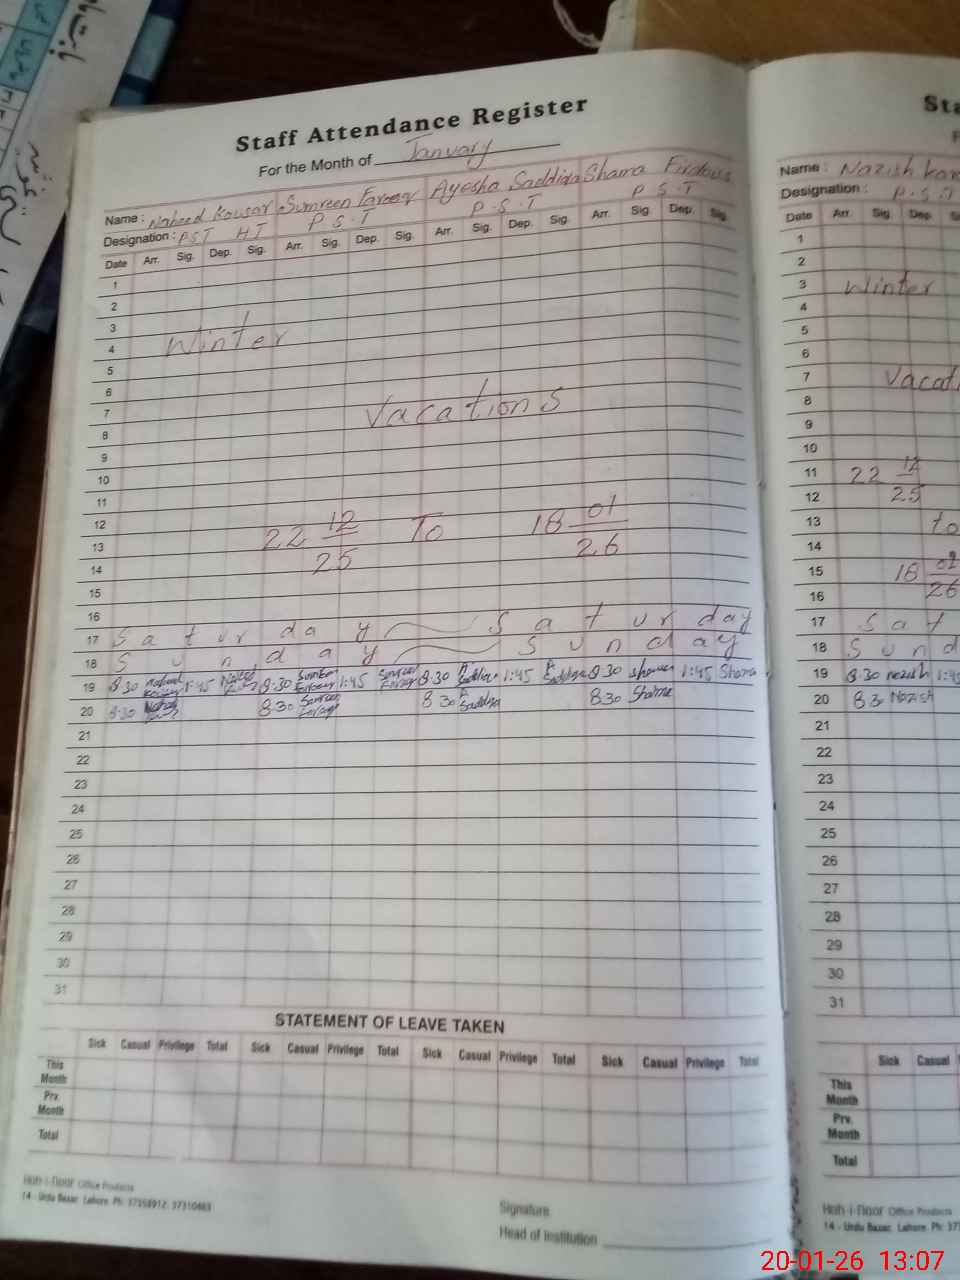 Staff Attendance Register
For the Month of January
Name: Naheed Kousar Sumreen Farooq Ayesha Saddiqa Shama Firdous
Designation: PST HT P.S.T P.S.T P.S.T
Date Arr. Sig. Dep. Sig. Arr. Sig. Dep. Sig. Arr. Sig. Dep. Sig. Arr. Sig. Dep. Sig.
1
2
3
4 Winter
5
6
7 Vacations
8
9
10
11
12
13 22 12/25 To 18 01/26
14
15
16
17 Saturday Saturday
18 Sunday Sunday
19 8:30 Naheed Kousar 1:45 Naheed 8:30 1:45 8:30 A Saddiqa 1:45 A Saddiqa 8:30 Shama 1:45 Shama
20 8:30 8:30 8:30 A Saddiqa 8:30 Shama
21
22
23
24
25
26
27
28
29
30
31
STATEMENT OF LEAVE TAKEN
Sick Casual Privilege Total Sick Casual Privilege Total Sick Casual Privilege Total Sick Casual Privilege Total
This Month
Prv. Month
Total
Office Products
14 - Urdu Bazar. Lahore. Ph: 37358912, 37310463
Signature
Head of Institution
Sta
Name: Nazish
Designation: P.S.T
Date Arr. Sig. Dep.
1
2
3 Winter
4
5
6
7 Vacati
8
9
10
11 22 12/25
12
13 to
14
15 18 /26
16
17 Sat
18 Sund
19 8:30 Nazish 1:45
20 8:30 Nazish
21
22
23
24
25
26
27
28
29
30
31
Sick Casual
This Month
Prv. Month
Total
Office Products
14 - Urdu Bazar. Lahore. Ph: 37
20-01-26 13:07